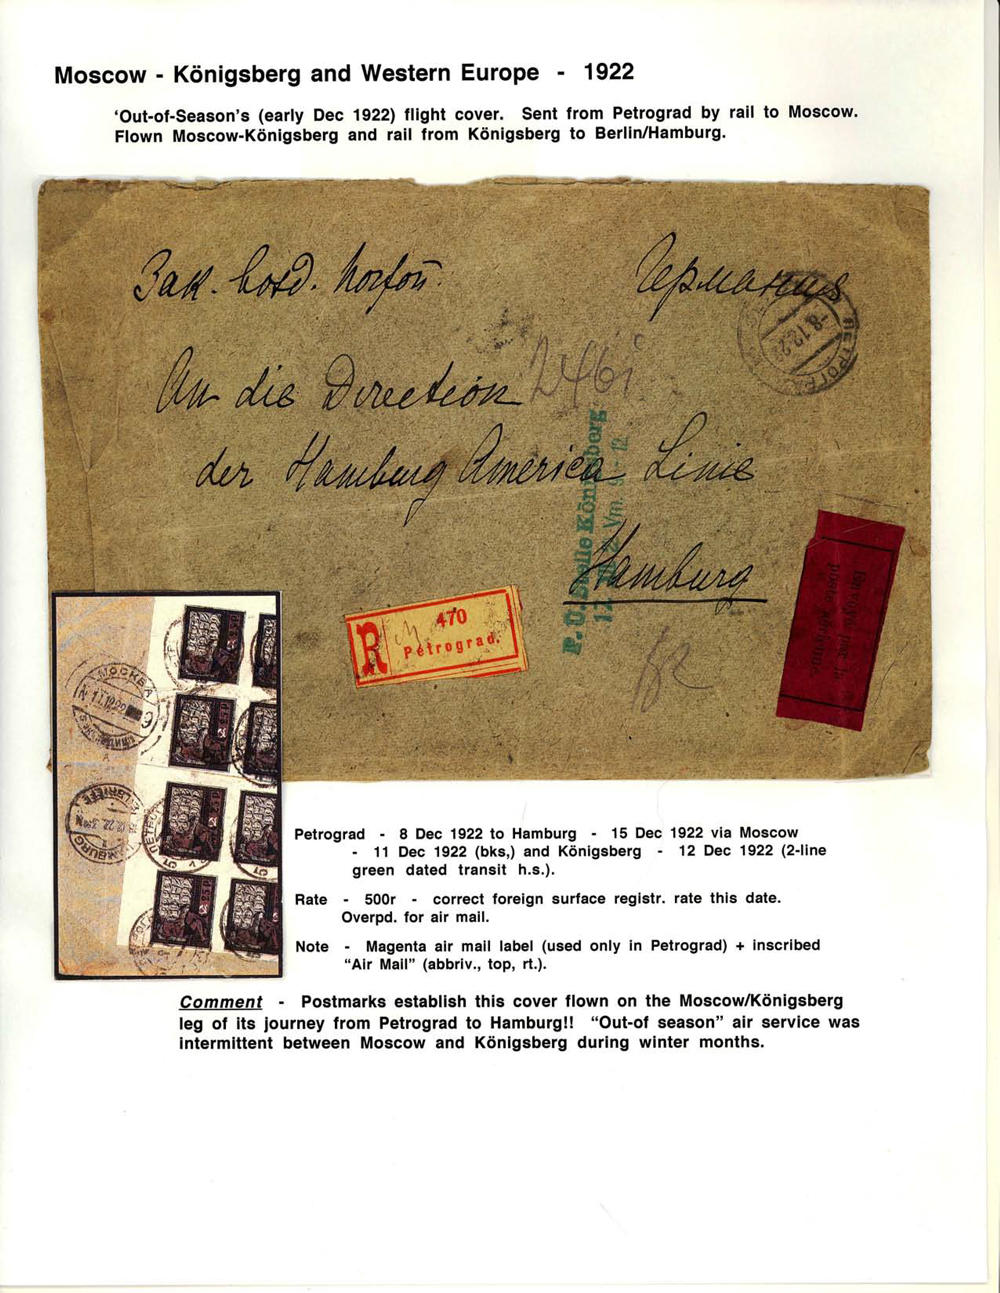 Moscow - Königsberg and Western Europe - 1922
‘Out-of-Season's (early Dec 1922) flight cover. Sent from Petrograd by rail to Moscow.
Flown Moscow-Königsberg and rail from Königsberg to Berlin/Hamburg.
Зак.
Германия
An die Direction
der Hamburg America Linie
Hamburg
2461
-8.12.22
ПЕТРОГРАД
P.O. Stelle Königsberg
R
470
Petrograd.
Envoyée par la
poste aérienne
МОСКВА
82
Petrograd - 8 Dec 1922 to Hamburg - 15 Dec 1922 via Moscow
- 11 Dec 1922 (bks,) and Königsberg - 12 Dec 1922 (2-line
green dated transit h.s.).
Rate - 500r - correct foreign surface registr. rate this date.
Overpd. for air mail.
Note - Magenta air mail label (used only in Petrograd) + inscribed
“Air Mail” (abbriv., top, rt.).
Comment - Postmarks establish this cover flown on the Moscow/Königsberg
leg of its journey from Petrograd to Hamburg!! “Out-of season” air service was
intermittent between Moscow and Königsberg during winter months.